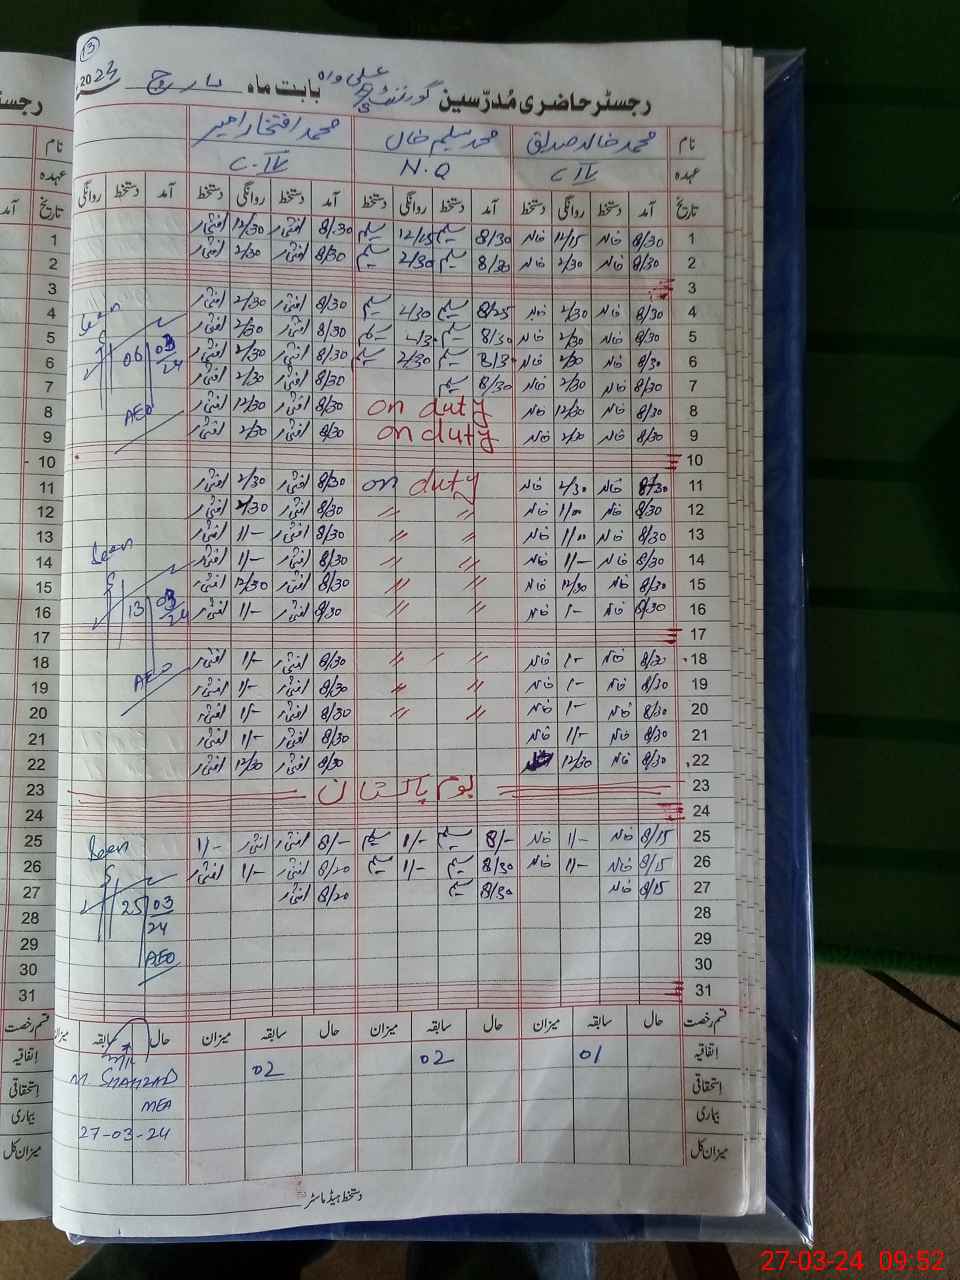 13
رجسٹر حاضری مُدرّسین گورنمنٹ بابت ماہ مارچ
نام محمد خالد صدیق محمد سلیم خان محمد افتخار امیر
عہدہ C IV N.Q C-IV
تاریخ آمد دستخط روانگی دستخط آمد دستخط روانگی دستخط آمد دستخط روانگی دستخط آمد دستخط روانگی
1 8/30 خالد 12/15 خالد 8/30 سلیم 12/15 سلیم 8/30 افتخار 12/30 افتخار
2 8/30 خالد 2/30 خالد 8/30 سلیم 2/30 سلیم 8/30 افتخار 2/30 افتخار
3
4 8/30 خالد 2/30 خالد 8/25 سلیم 2/30 سلیم 8/30 افتخار 2/30 افتخار Seen
5 8/30 خالد 2/30 خالد 8/30 سلیم سلیم 8/30 افتخار 2/30 افتخار
6 8/30 خالد 2/30 خالد سلیم 2/30 سلیم 8/30 افتخار 2/30 افتخار 06 03/24
7 8/30 خالد 2/30 خالد 8/30 سلیم 8/30 افتخار 2/30 افتخار
8 8/30 خالد 12/30 خالد on duty 8/30 افتخار 12/30 افتخار AEO
9 8/30 خالد 2/30 خالد on duty 8/30 افتخار 2/30 افتخار
10
11 8/30 خالد 2/30 خالد on duty 8/30 افتخار 2/30 افتخار
12 8/30 خالد 1/00 خالد " " 8/30 افتخار 2/30 افتخار
13 8/30 خالد 1/00 خالد " " 8/30 افتخار 1/- افتخار Seen
14 8/30 خالد 1/- خالد " " 8/30 افتخار 1/- افتخار
15 8/30 خالد 12/30 خالد " " 8/30 افتخار 12/30 افتخار
16 8/30 خالد 1- خالد " " 8/30 افتخار 1/- افتخار 13 03/24
17
18 8/30 خالد 1- خالد " " 8/30 افتخار 1/- افتخار
19 8/30 خالد 1- خالد " " 8/30 افتخار 1/- افتخار AEO
20 8/30 خالد 1- خالد " " 8/30 افتخار 1/- افتخار
21 8/30 خالد 1/- خالد 8/30 افتخار 1/- افتخار
22 8/30 خالد 12/30 8/30 افتخار 12/30 افتخار
23 یوم پاکستان
24
25 8/15 خالد 1/- خالد 8/- سلیم 1/- سلیم 8/- افتخار افتخار 1/- Seen
26 8/15 خالد 1/- خالد 8/30 سلیم 1/- سلیم 8/20 افتخار 1/- افتخار
27 8/15 خالد 8/30 سلیم 8/20 افتخار 25 03/24
28
29
30 AEO
31
قسم رخصت حال سابقہ میزان حال سابقہ میزان حال سابقہ میزان حال سابقہ میزان
اتفاقیہ 01 02 02
استحقاقی M SHAHZAD
بیماری MEA
میزان کل 27-03-24
دستخط ہیڈ ماسٹر
27-03-24 09:52